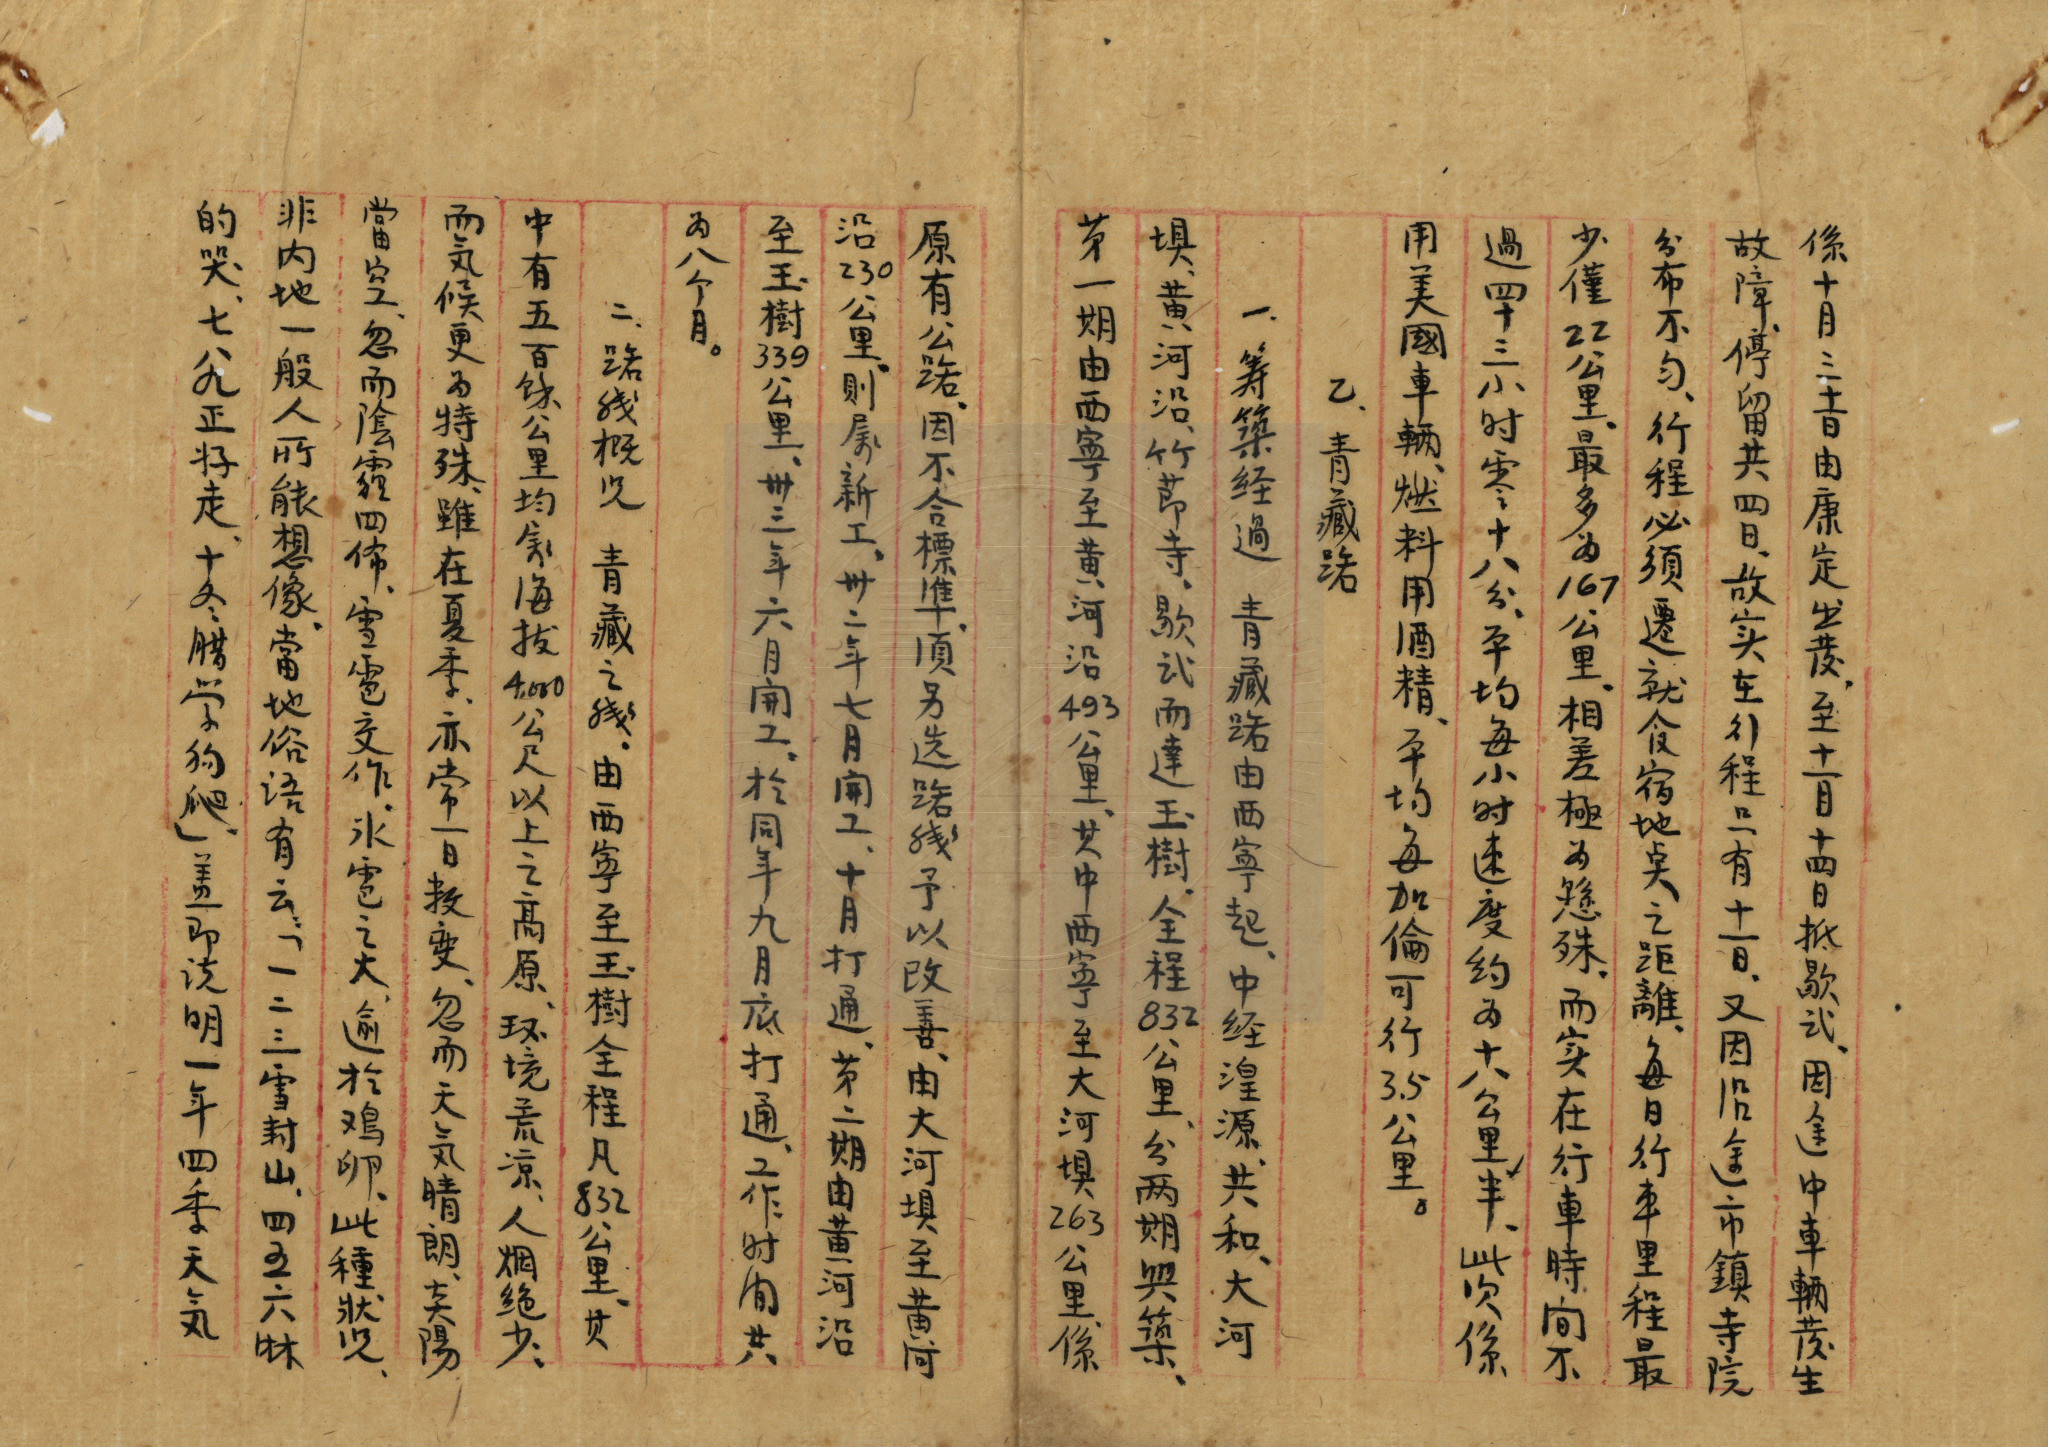 係十月三十日由康定出發、至十一月十四日抵歇武、因途中車輛發生
故障、停留共四日、故实在行程只有十一日、又因沿途市鎮寺院
分布不匀、行程必須遷就食宿地点之距離、每日行車里程最
少僅22公里、最多为167公里、相差極为懸殊、而实在行車時間不
過四十三小时零十八分、平均每小时速度约为十八公里半、此次係
用美國車輛、燃料用酒精、平均每加倫可行3.5公里。
乙、青藏路
一、筹築经過 青藏路由西寧起、中经湟源、共和、大河
垻、黄河沿、竹莭寺、歇武而達玉樹、全程832公里、分两期興築、
茅一期由西寧至黄河沿493公里、其中西寧至大河垻263公里、係
原有公路、因不合標準、須另选路綫予以改善、由大河垻至黄河
沿230公里、則属新工、卅二年七月開工、十月打通、茅二期由黄河沿
至玉樹339公里、卅三年六月開工、於同年九月底打通、工作时间共
为八个月。
二、路綫概况 青藏之綫、由西寧至玉樹全程凡832公里、其
中有五百餘公里均系海拔4,000公尺以上之高原、环境荒凉、人烟绝少、
而気候更为特殊、雖在夏季、亦常一日数变、忽而天気晴朗、炎陽
當空、忽而陰霾四佈、雪雹交作、氷雹之大、逾於鸡卵、此種狀况、
非内地一般人所能想像、當地俗语有云:「一二三雪封山、四五六淋
的哭、七八九正好走、十冬腊学狗爬」、盖即说明一年四季天気